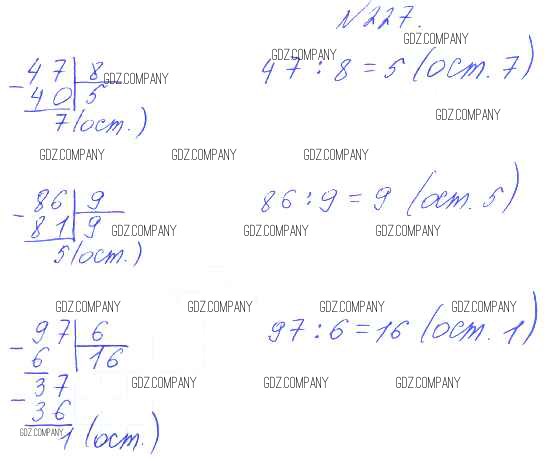 №227.
GDZ.COMPANY
GDZ.COMPANY
47 | 8 47 : 8 = 5 (ост. 7)
GDZ.COMPANY
- 40 | 5
7 (ост.)
GDZ.COMPANY
GDZ.COMPANY GDZ.COMPANY GDZ.COMPANY
86 | 9 86 : 9 = 9 (ост. 5)
- 81 | 9
GDZ.COMPANY GDZ.COMPANY GDZ.COMPANY
5 (ост.)
GDZ.COMPANY GDZ.COMPANY GDZ.COMPANY GDZ.COMPANY
97 | 6 97 : 6 = 16 (ост. 1)
- 6 | 16
37
GDZ.COMPANY GDZ.COMPANY GDZ.COMPANY
- 36
GDZ.COMPANY
1 (ост.)